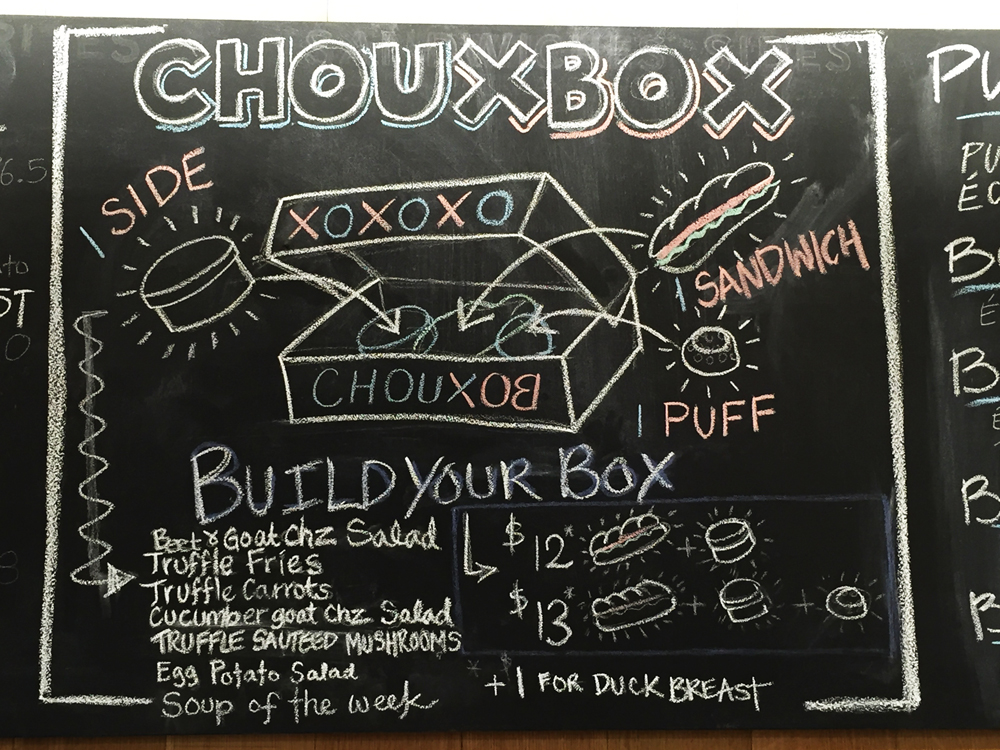 CHOUXBOX
1 SIDE
XOXOXO
1 SANDWICH
CHOUXBOX
1 PUFF
BUILD YOUR BOX
Beet & Goat Chz Salad
Truffle Fries
Truffle Carrots
Cucumber goat chz Salad
TRUFFLE SAUTEED MUSHROOMS
Egg Potato Salad
Soup of the week
$12* +
$13* + +
* $
+1 FOR DUCK BREAST
6.5
ST
PU